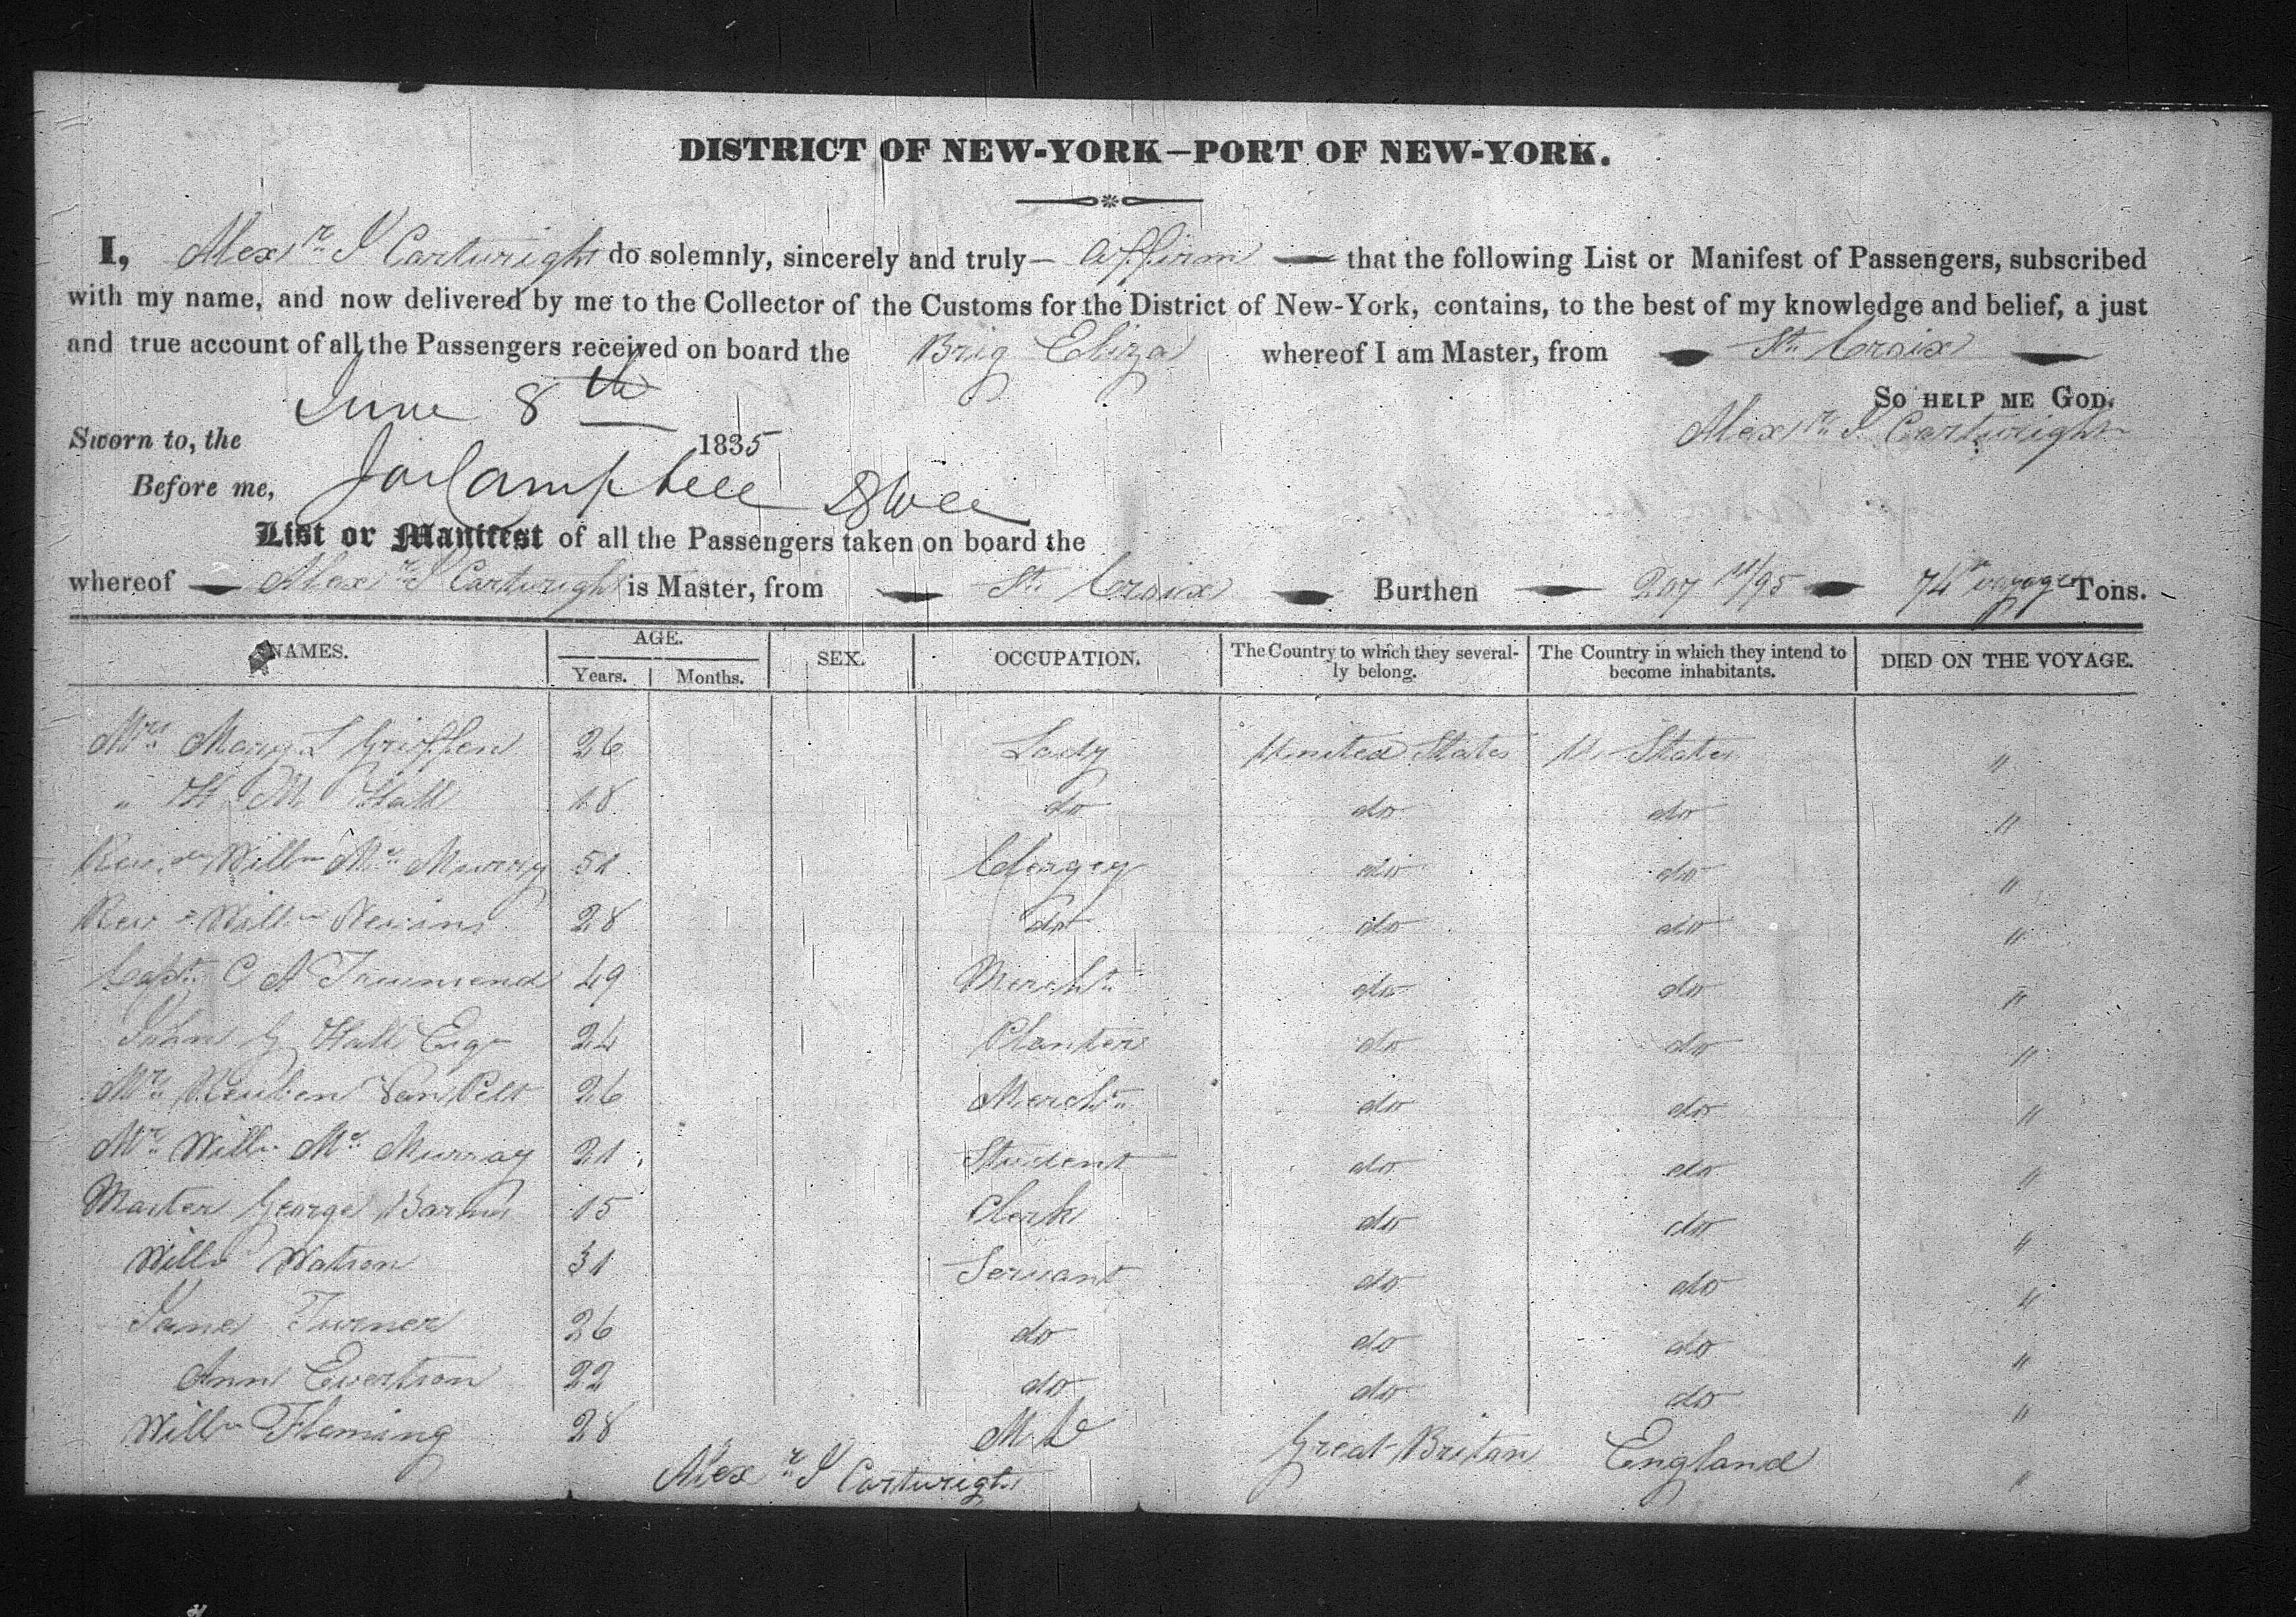 DISTRICT OF NEW-YORK—PORT OF NEW-YORK.
I, Alexr J Cartwright do solemnly, sincerely and truly — affirm — that the following List or Manifest of Passengers, subscribed
with my name, and now delivered by me to the Collector of the Customs for the District of New-York, contains, to the best of my knowledge and belief, a just
and true account of all the Passengers received on board the Brig Eliza whereof I am Master, from St. Croix
So HELP ME GOD.
Sworn to, the June 8th 1835 Alexr J. Cartwright
Before me, Campbell
List or Manifest of all the Passengers taken on board the
whereof Alexr J Cartwright is Master, from St. Croix Burthen 207 11/95 74th voyage Tons.
NAMES. AGE. SEX. OCCUPATION. The Country to which they severally belong. The Country in which they intend to become inhabitants. DIED ON THE VOYAGE.
Years. Months.
Mrs Mary L Griffen 26 Lady United States U States "
" H. M Hall 18 do do do "
Rev. Willm Mc Murray 51 Clergy do do "
Rev Willm Nevins 28 do do do "
Capt. C A Townsend 49 Mercht do do "
John G Hall Esqr 24 Planter do do "
Mr Reuben Van Pelt 26 Mercht do do "
Mr Willm Mc Murray 21 Student do do "
Master George Barnes 15 Clerk do do "
Willm Watson 31 Servant do do "
Jane Turner 26 do do do "
Ann Evertson 22 do do do "
Willm Fleming 28 M D Great-Britan England "
Alexr J Cartwright